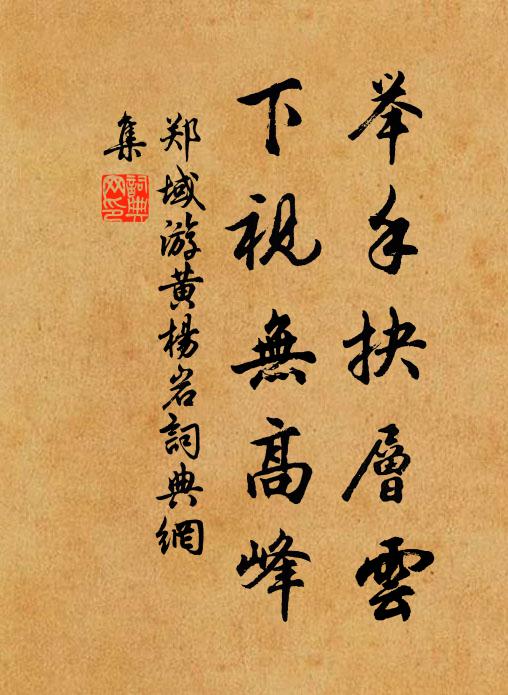 举手抉層雲
下視無高峰
郑域游黄楊岩詞典網
集
詞典
网印